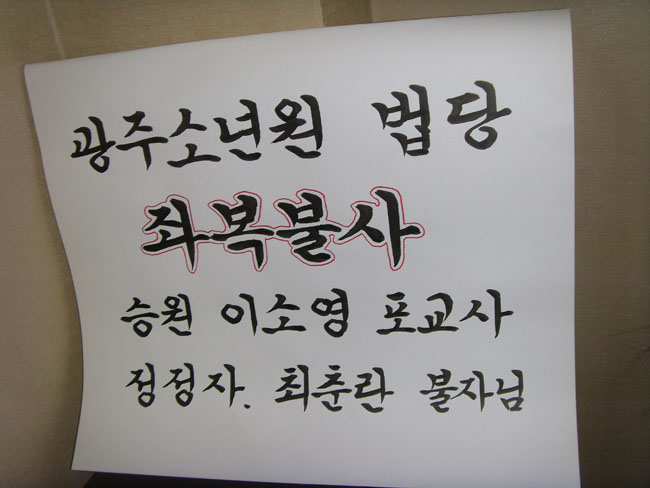 광주소년원 법당
좌복불사
승원 이소영 포교사
정정자. 최춘란 불자님